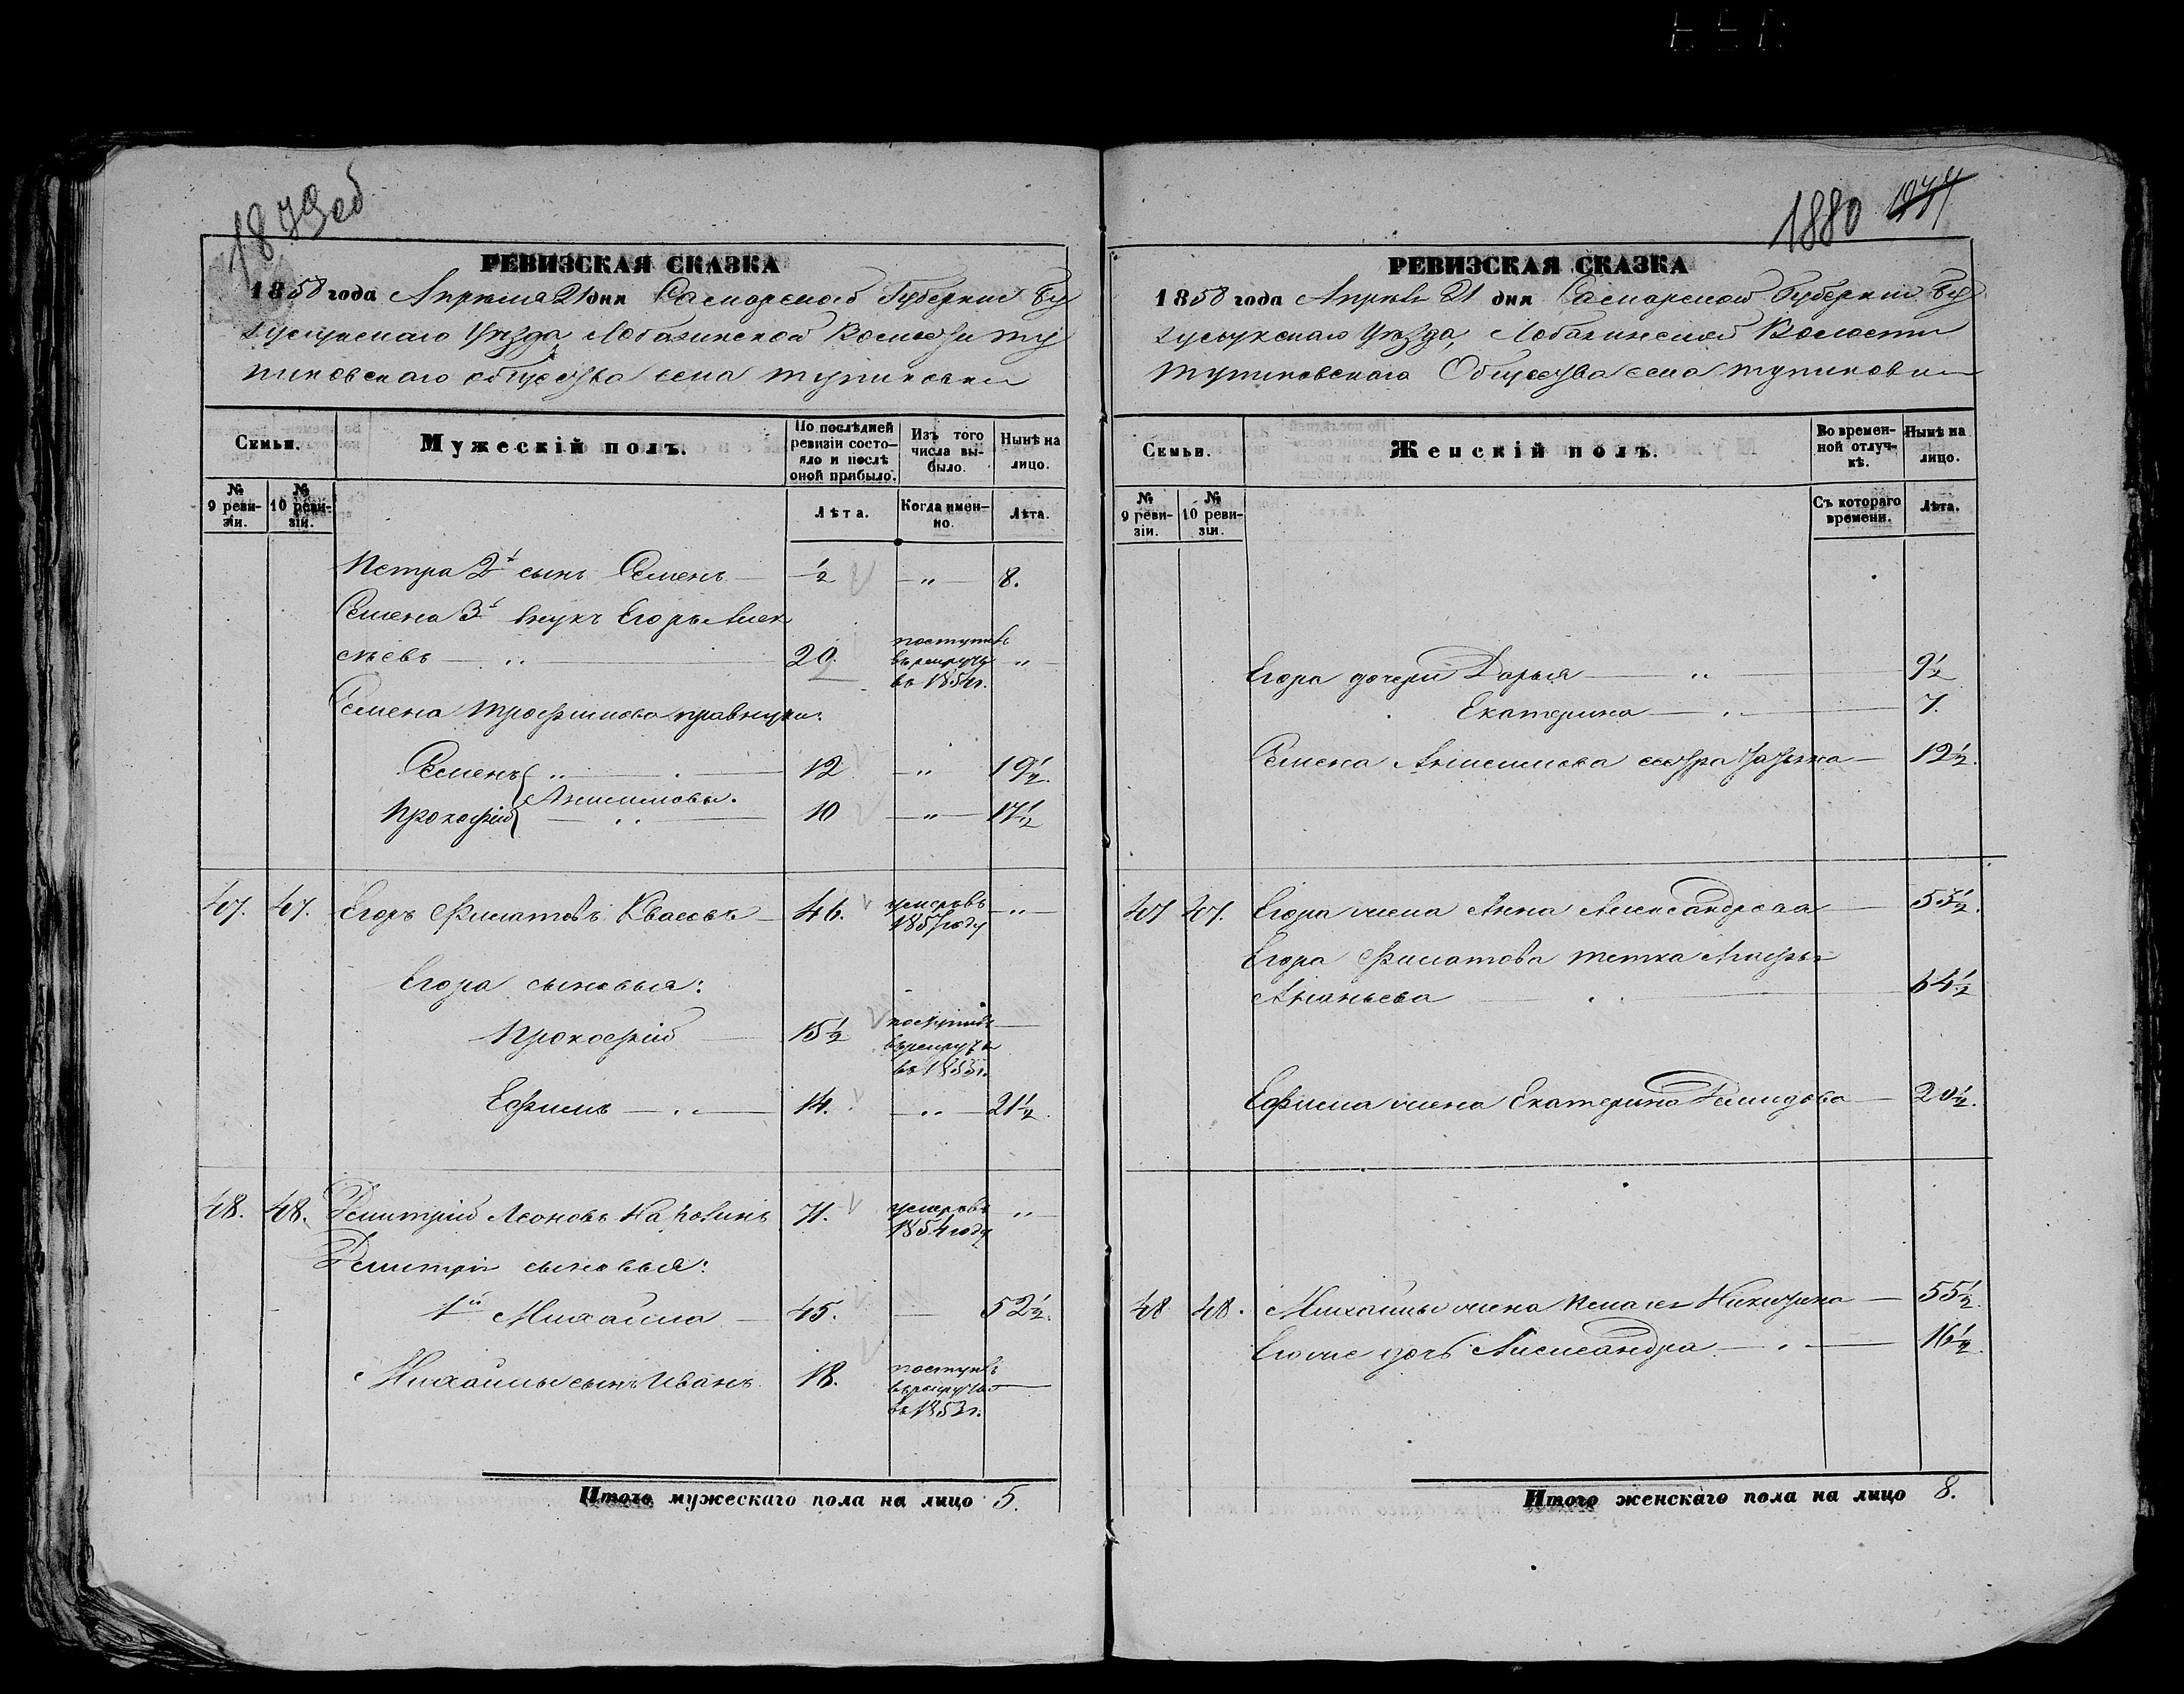 1879 об
РЕВИЗСКАЯ СКАЗКА
1858 года Апрѣля 21 дня Самарской Губернiи Бу
зулукскаго Уѣзда Лобазинской Волости Ту
пиковскаго общества села Тупиковки
Семьи.
Мужескiй полъ.
По послѣдней ревизiи состо-
яло и послѣ оной прибыло.
Изъ того числа вы-
было.
Нынѣ на лицо.
№ 9 реви-
зiи.
№ 10 реви-
зiи.
Лѣта.
Когда имен-
но.
Лѣта.
Петра 2й сынъ Семенъ — ½ — " — 8.
Семена 3й внукъ Егоръ Алек
сѣевъ — " — 20. поступилъ въ рекруты въ 1854 г. "
Семена Трофимова правнуки:
Семенъ — " — 12 — " — 19½.
Анисимовы.
Прокофiй — " — 10 — " — 17½
47. 47. Егоръ Филатовъ Квасовъ — 46. умеръ въ 1857 году — " —
Егора сыновья:
Прокофiй — 15½ поступилъ въ рекруты въ 1855 г. —
Ефимъ — " — 14. — " — 21½.
48. 48. Дмитрiй Леоновъ 71. умеръ въ 1854 году "
Дмитрiя сыновья:
1й Михайла — 45. — 52½.
Михайлы сынъ Иванъ 18. поступилъ въ рекруты въ 1853 г. —
Итого мужескаго пола на лицо 5.
1880
РЕВИЗСКАЯ СКАЗКА
1858 года Апрѣля 21 дня Самарской Губернiи Бу
зулукскаго Уѣзда, Лобазинской Волости
Тупиковскаго Общества села Тупиковки
Семьи.
Женскiй полъ.
Во времен-
ной отлуч-
кѣ.
Нынѣ на лицо.
№ 9 реви-
зiи.
№ 10 реви-
зiи.
Съ котораго времени.
Лѣта.
Егора дочери Дарья — " — 9½
Екатерина — " — 7.
Семена Анисимова сестра Татьяна — 12½.
47 47. Егора жена Анна Александрова — 53½.
Егора Филатова тетка Агафья
Ананьева — 64½
Ефима жена Екатерина Демидова — 20½.
48 48. Михайлы жена Пелагея Никитина — 55½.
Егоже дочь Александра — " — 16½.
Итого женскаго пола на лицо 8.